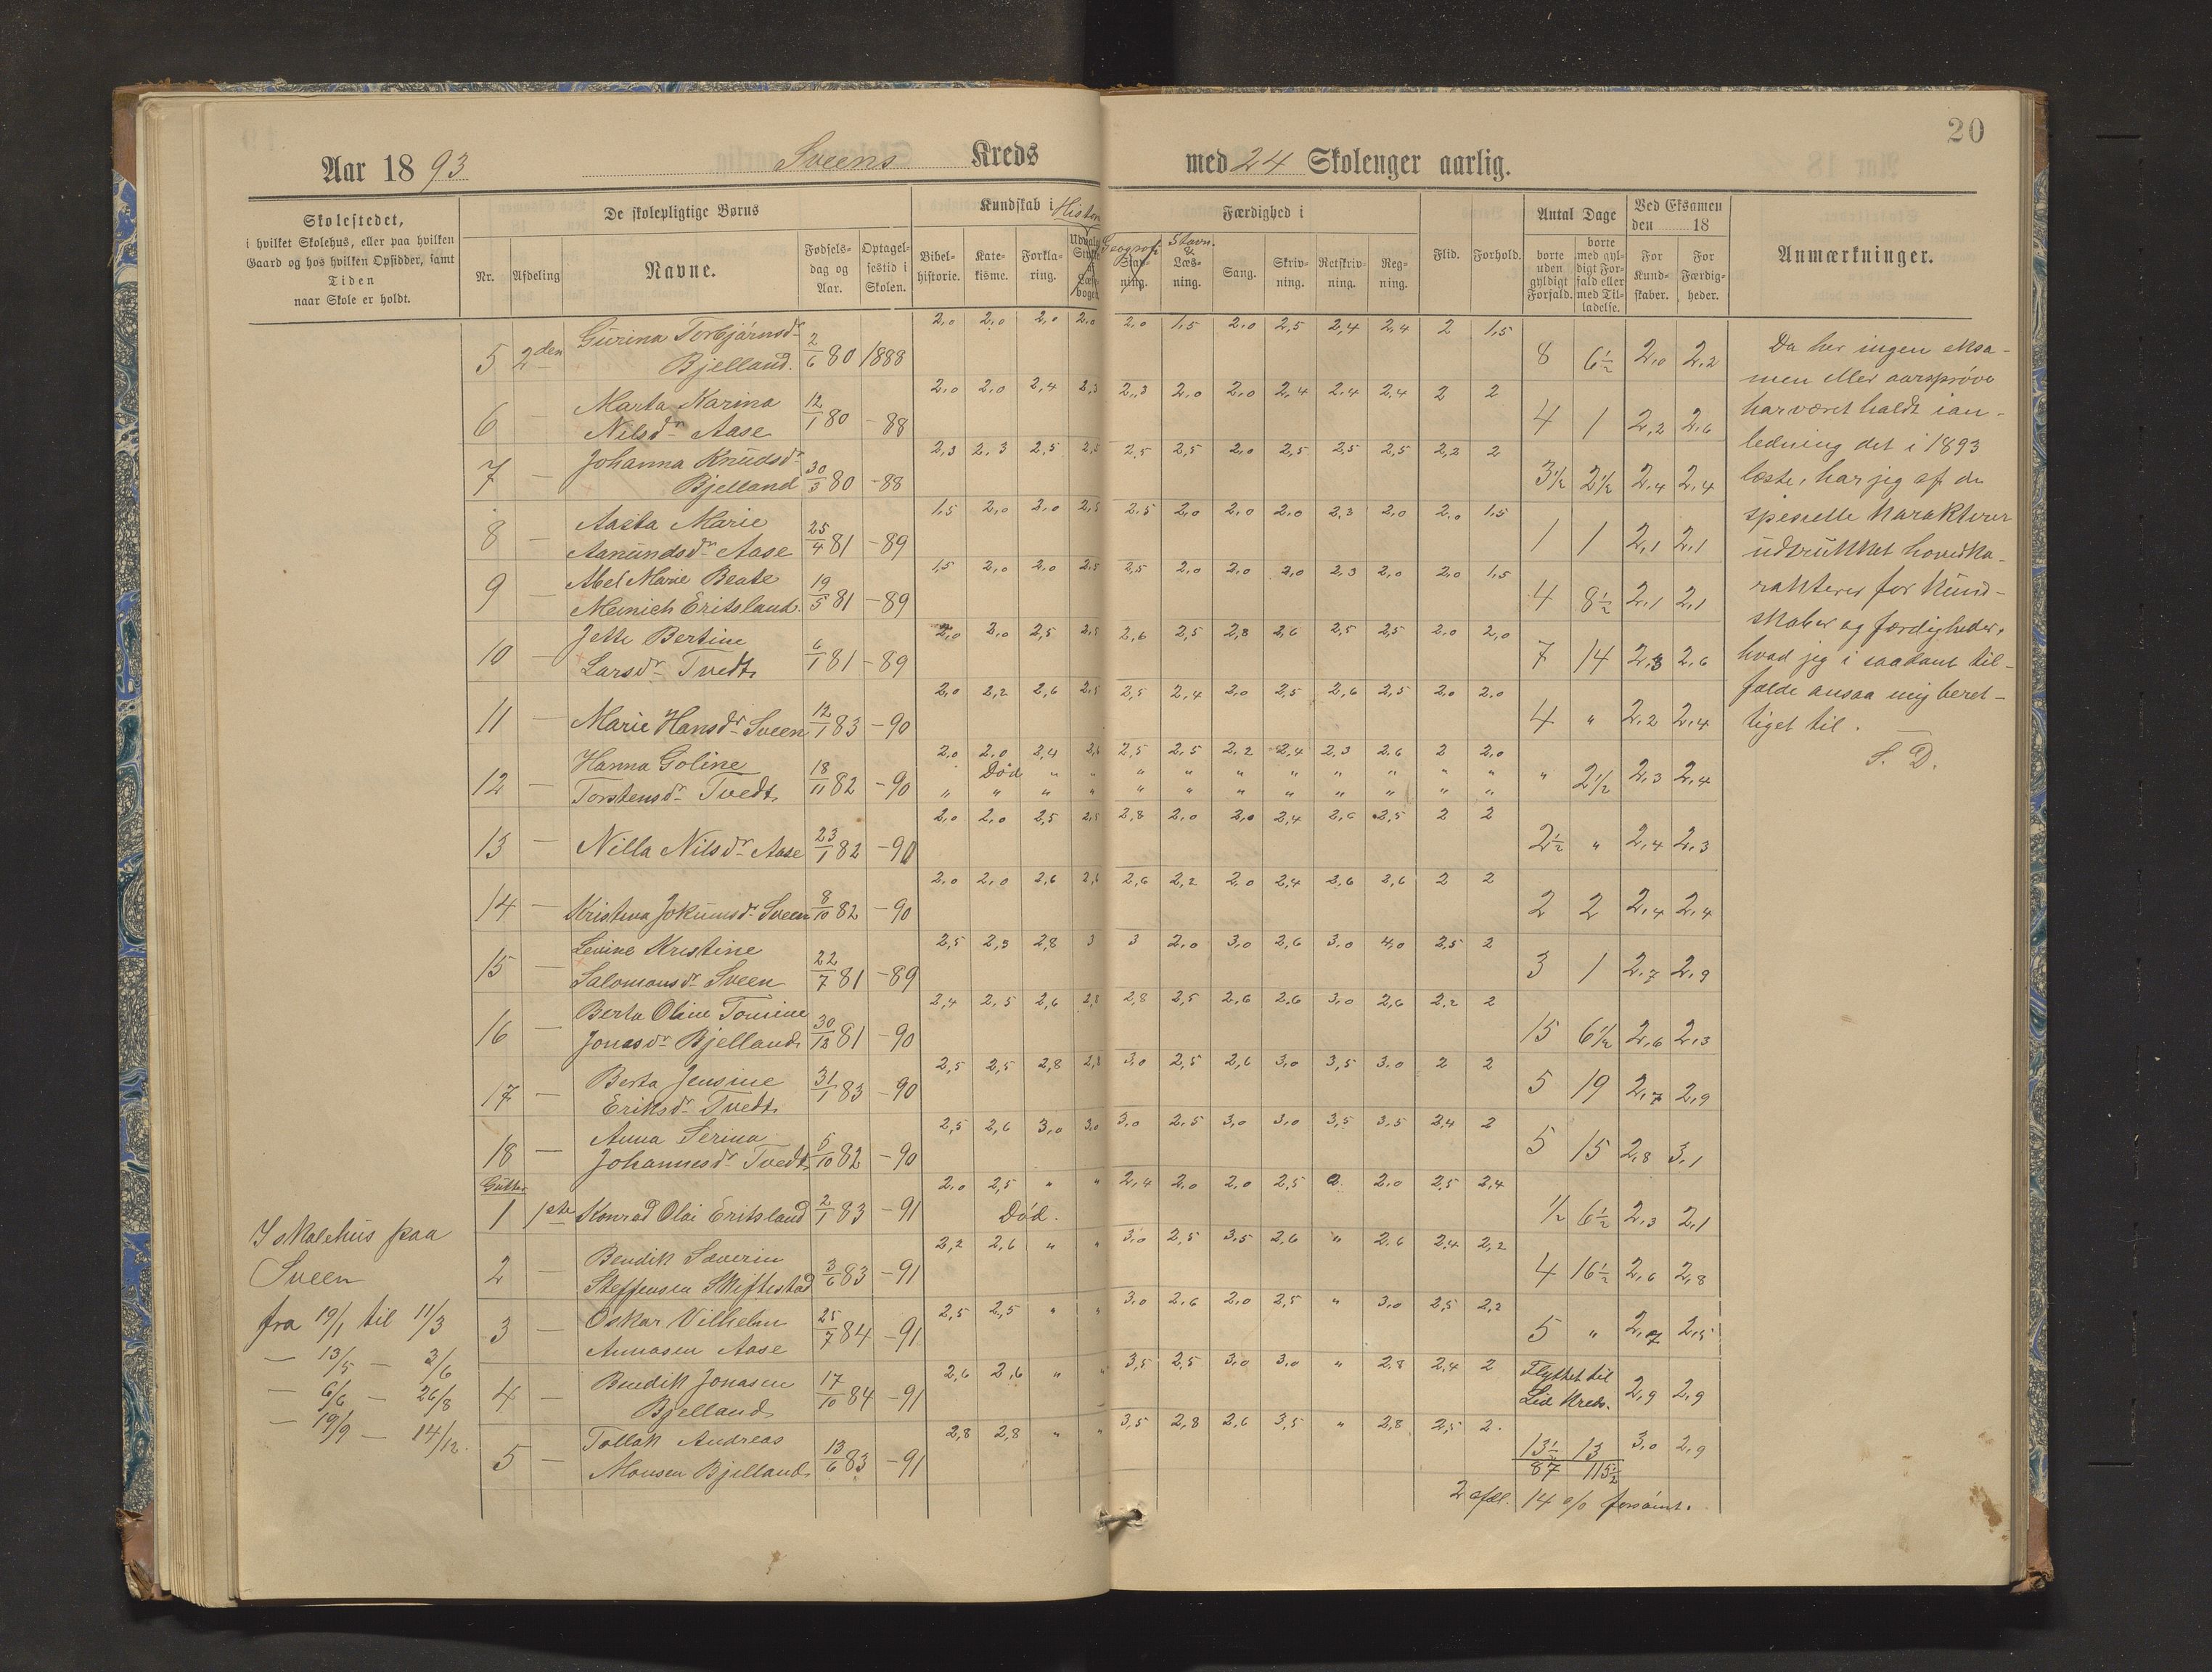 20
Aar 1893 Sveens Kreds med 24 Skolenger aarlig.
Skolestedet,
i hvilket Skolehus, eller paa hvilken
Gaard og hos hvilken Opsidder, samt
Tiden
naar Skole er holdt.
De skolepligtige Børns
Nr. Afdeling Navne. Fødsels-dag og Aar. Optagel-sestid i Skolen.
Kundskab i Histori
Bibel-historie. Kate-kisme. Forkla-ring. Udvalgte Stykker i Læse-bogen
Færdighed i
Geografi Stav-ning. Stavn. & Læs-ning. Sang. Skriv-ning. Retskriv-ning. Reg-ning. Flid. Forhold.
Antal Dage
borte uden gyldigt Forfald. borte med gyl-digt For-fald eller med Til-ladelse.
Ved Eksamen den 18
For Kund-skaber. For Færdig-heder.
Anmærkninger.
5 2den Gurina Torbjørnsdr Bjelland. 2/6 80 1888 2,0 2,0 2,0 2,0 2,0 1,5 2,0 2,5 2,4 2,4 2 1,5 8 6½ 2,0 2,2
6 — Marta Karina Nilsdr Aase 12/1 80 -88 2,0 2,0 2,4 2,3 2,3 2,0 2,0 2,4 2,4 2,4 2 2 4 1 2,2 2,6
7 — Johanna Knudsdr Bjelland 30/3 80 -88 2,3 2,3 2,5 2,5 2,5 2,5 2,0 2,5 2,5 2,5 2,2 2 3½ 2½ 2,4 2,4
8 — Aasta Marie Aanundsdr Aase 25/4 81 -89 1,5 2,0 2,0 2,5 2,5 2,0 2,0 2,0 2,3 2,0 2,0 1,5 1 1 2,1 2,1
9 — Abel Marie Beate Meinich Eritsland 19/5 81 -89 1,5 2,0 2,0 2,5 2,5 2,0 2,0 2,0 2,3 2,0 2,0 1,5 4 8½ 2,1 2,1
10 — Jette Bertine Larsdr Tvedt 6/1 81 -89 2,0 2,0 2,5 2,5 2,6 2,5 2,8 2,6 2,5 2,5 2,0 2,0 7 14 2,3 2,6
11 — Marie Hansdr Sveen 12/1 83 -90 2,0 2,2 2,6 2,5 2,5 2,4 2,0 2,5 2,6 2,5 2,0 2,0 4 " 2,2 2,4
12 — Hanna Goline Torstensdr Tvedt 18/11 82 -90 2,0 2,0 2,4 2,6 2,5 2,5 2,2 2,4 2,3 2,6 2 2,0 " 2½ 2,3 2,4
Død " " " " " " " " " "
" " " " " " " " " " " "
13 — Nilla Nilsdr Aase 23/1 82 -90 2,0 2,0 2,5 2,5 2,8 2,0 2,0 2,4 2,6 2,5 2 2 2½ " 2,4 2,3
14 — Kristina Jokumsdr Sveen 8/10 82 -90 2,0 2,0 2,6 2,6 2,6 2,2 2,0 2,4 2,6 2,6 2 2 2 2 2,4 2,4
15 — Levine Kristine Salomonsdr Sveen 22/7 81 -89 2,5 2,3 2,8 3 3 2,0 3,0 2,6 3,0 4,0 2,5 2 3 1 2,7 2,9
16 — Berta Oline Tomine Jonasdr Bjelland 30/12 81 -90 2,4 2,5 2,6 2,8 2,8 2,5 2,6 2,6 3,0 2,6 2,2 2 15 6½ 2,6 2,3
17 — Berta Jensine Eriksdr Tvedt 31/1 83 -90 2,5 2,5 2,8 2,8 3,0 2,5 2,6 3,0 3,5 3,0 2 2 5 19 2,7 2,9
18 — Anna Serina Johannesdr Tvedt 5/10 82 -90 2,5 2,6 3,0 3,0 3,0 2,5 3,0 3,0 3,5 3,5 2,4 2 5 15 2,8 3,1
Gutter
1 1ste Konrad Olai Eritsland 2/1 83 -91 2,0 2,5 " " 2,4 2,0 2,0 2,5 2,0 2,5 2,4 ½ 6½ 2,3 2,1
Død.
2 — Bendik Severin Steffensen Skiftestad 3/6 83 -91 2,2 2,6 " " 3,0 2,5 3,5 2,6 " 2,6 2,4 2,2 4 16½ 2,6 2,8
3 — Oskar Vilhelm Aanasen Aase 25/7 84 -91 2,5 2,5 " " 3,0 2,6 2,0 2,5 " 3,0 2,5 2,2 5 " 2,7 2,5
4 — Bendik Jonasen Bjelland 17/10 84 -91 2,6 2,6 " " 3,5 2,5 3,0 3,0 " 2,8 2,4 2 Flyttet til Lid Kreds. 2,9 2,9
5 — Tollak Andreas Monsen Bjelland 13/6 83 -91 2,8 2,8 " " 3,5 2,8 2,6 3,5 " 2,8 2,5 2. 13½ 13 3,0 2,9
87 115½
2 afdl. 14 o/o forsømt.
I skolehus paa
Sveen
fra 19/1 til 11/3
— 13/5 — 3/6
— 6/6 — 26/8
— 19/9 — 14/12.
Da her ingen eksa-
men eller aarsprøve
har været holdt i an-
ledning det i 1893
læste, har jeg af de
spesielle karakterer
udtrukket hovedka-
rakterer for kund-
skaber og færdigheder,
hvad jeg i saadant til-
fælde ansaa mig beret-
tiget til. —
S. D.